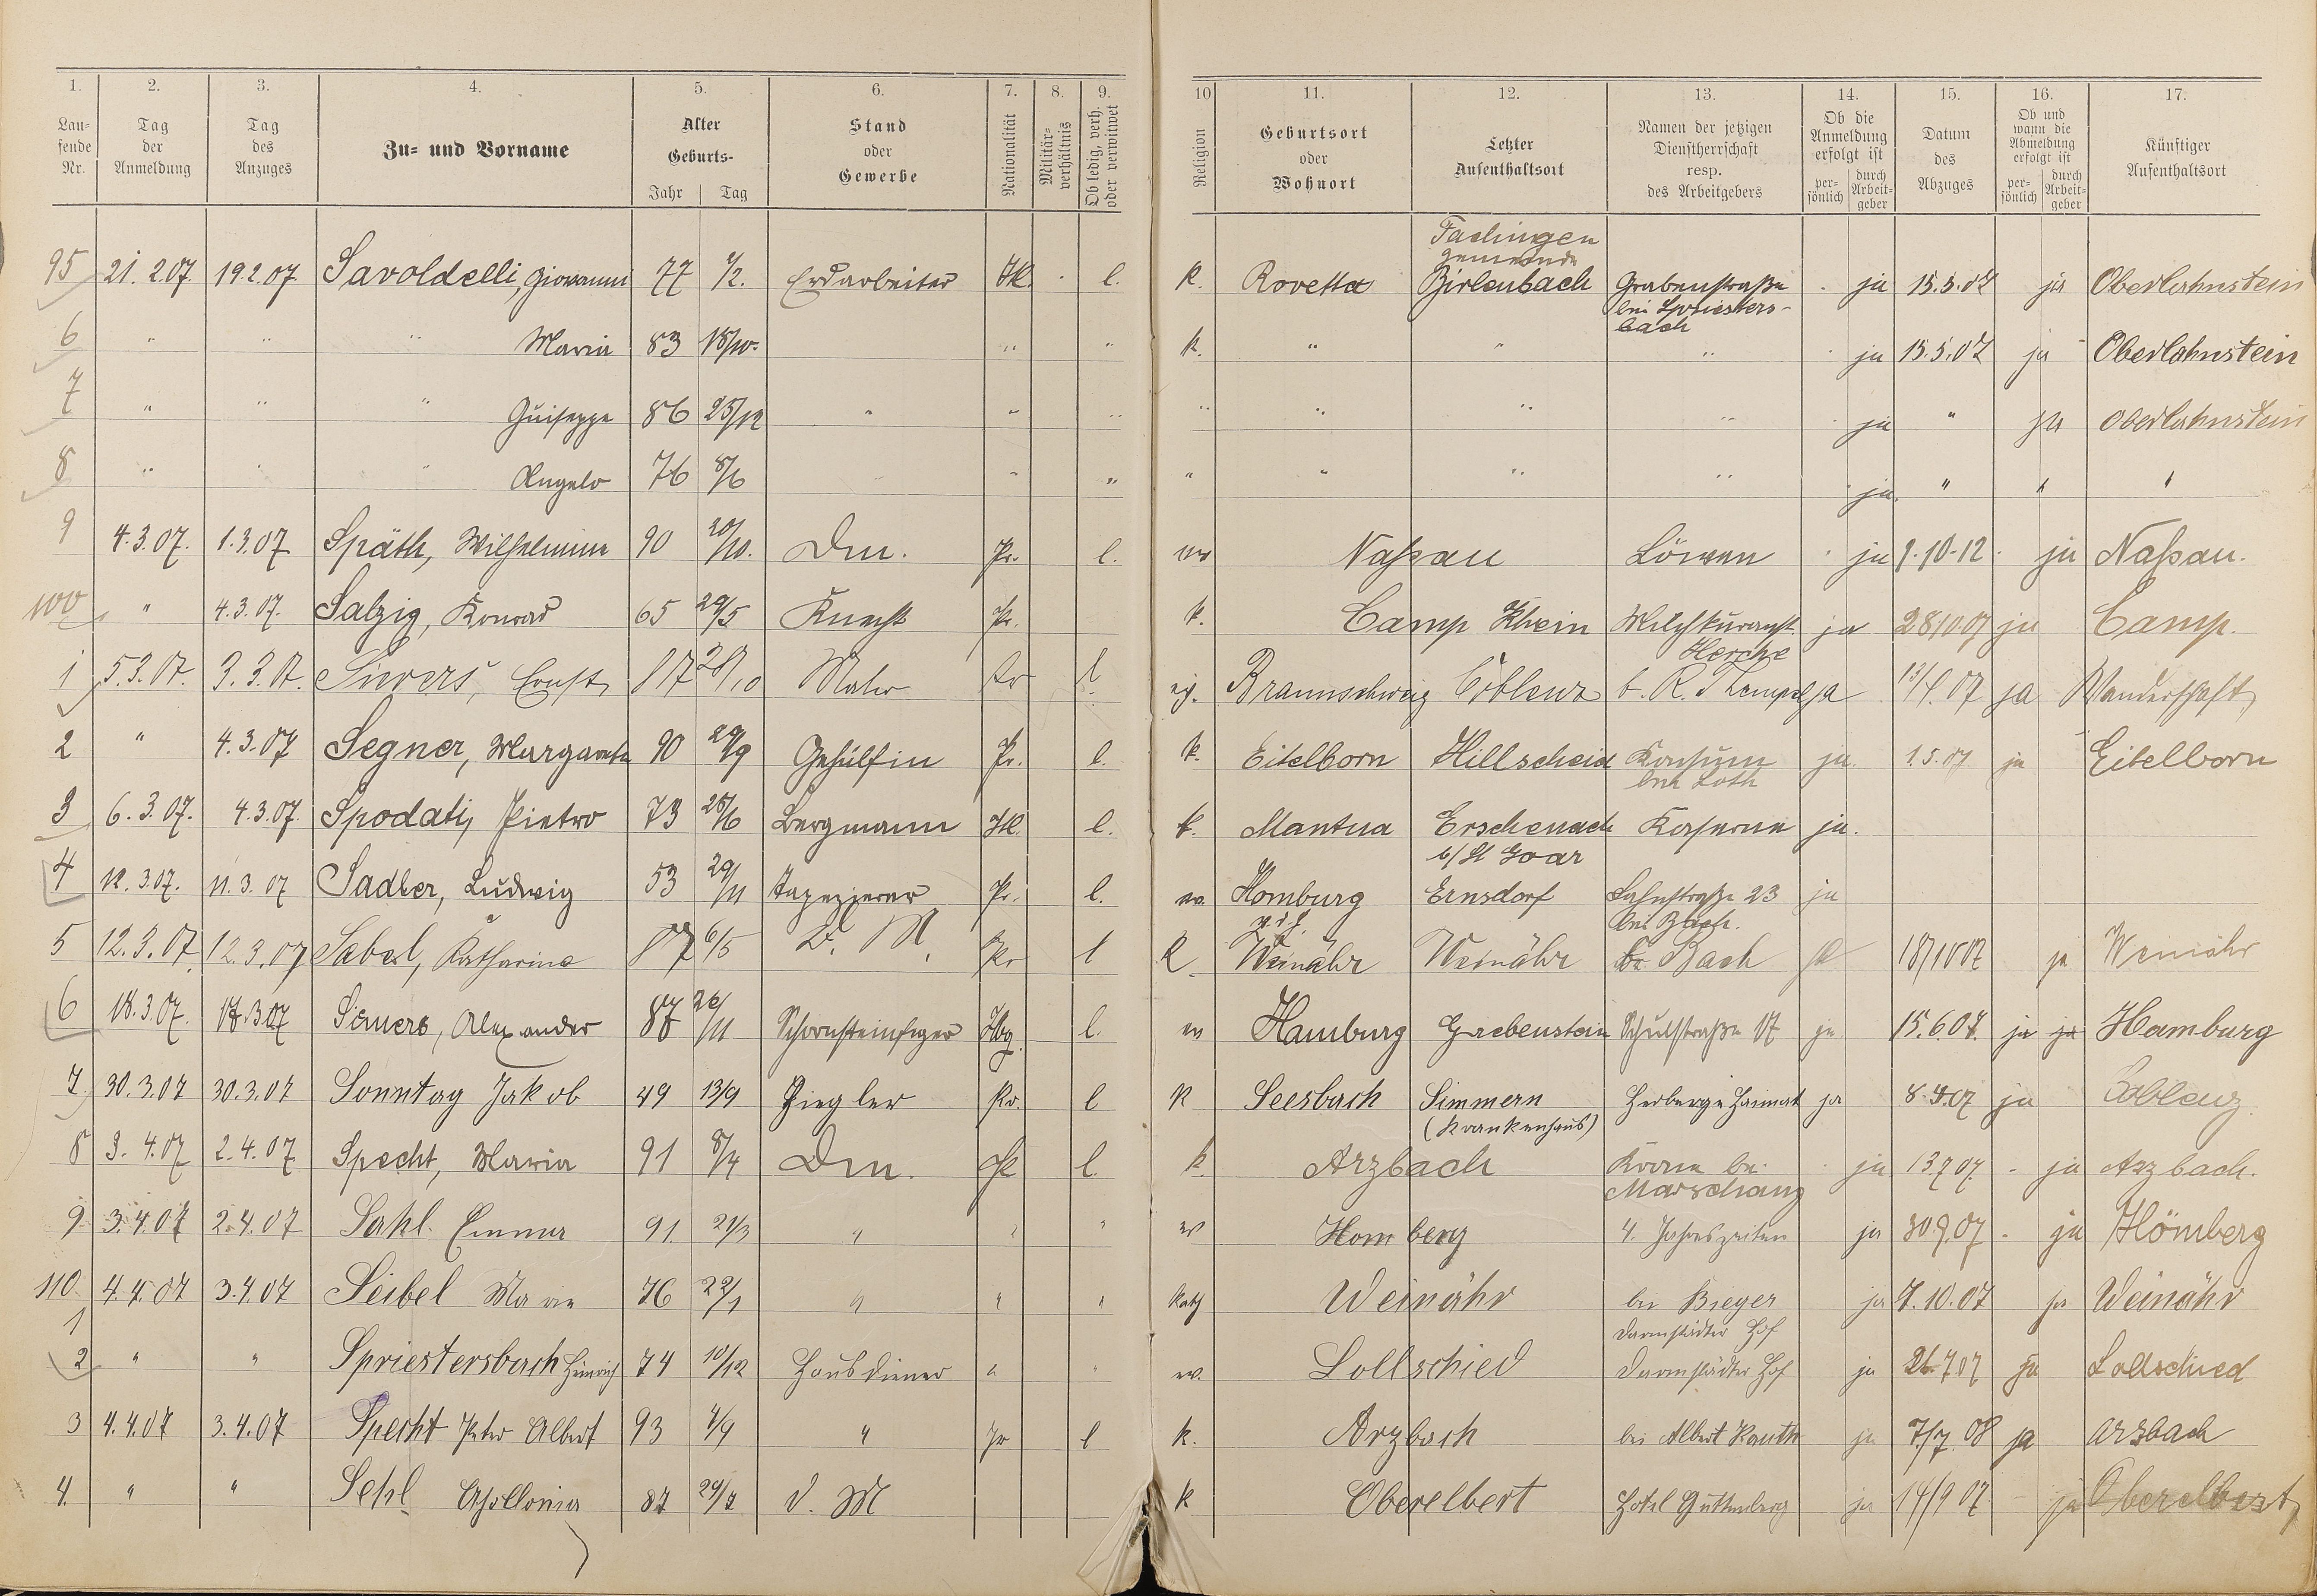 1. 2. 3. 4. 5. 6. 7. 8. 9. 10 11. 12. 13. 14. 15. 16. 17.
Lau-fende Nr. Tag der Anmeldung Tag des Anzuges Zu- und Vorname Alter Geburts- Jahr Tag Stand oder Gewerbe Nationalität Militär-verhältnis Ob ledig, verh. oder verwitwet Religion Geburtsort oder Wohnort Letzter Aufenthaltsort Namen der jetzigen Dienstherrschaft resp. des Arbeitgebers Ob die Anmeldung erfolgt ist per-sönlich durch Arbeit-geber Datum des Abzuges Ob und wann die Abmeldung erfolgt ist per-sönlich durch Arbeit-geber Künftiger Aufenthaltsort
Fachingen
Gemeinde
95 21.2.07. 19.2.07. Savoldelli, Giovanni 77 Erdarbeiter It. - l. k. Rovetta Birlenbach Grabenstraße - ja 15.5.07 ja Oberlahnstein
bei Spriesters-
bach
6 " " " Maria 83 18/10. " " k. " " " - ja 15.5.07 ja - Oberlahnstein
7 " " " Guiseppe 86 25/12 " " " " " " " - ja " ja Oberlahnstein
8 " " " Angelo 76 8/6 " " " " " " " - ja. " " "
9 4.3.07. 1.3.07 Späth, Wilhelmine 90 20/10. Dm. Pr. l. ev Naßau Löwen - ja 1.10.12 - ja Naßau.
100 " 4.3.07. Salzig, Konrad 65 29/5 Knecht Pr. k. Camp Rhein Milchkuranst. ja 28/10 07 ja Camp.
Herche
1 5.3.07. 3.3.07. Sievers, Ernst 87 28/10 Maler Pr l ev. Braunschweig Coblenz b. R. ja 07 ja Wanderschaft
2 " 4.3.07 Segner, Margareta 90 29/9 Gehülfin Pr. l. k. Eitelborn Hillscheid Konsum ja. 1.5.07 ja Eitelborn
bei Loth
3 6.3.07. 4.3.07. Spodati, Pietro 73 25/6 Bergmann It. l. k. Mantua Erschenach Kaserne ja.
b/St Goar
4 12.3.07. 11.3.07 Sadler, Ludwig 53 29/11 Tapezierer Pr. l. ev. Homburg Ernsdorf Lahnstraße 23 ja
v. d. H. bei
5 12.3.07. 12.3.07 Sabel, Katharine 87 6/5 D. M. Pr l k. Weinähr Weinähr Bach ja 18/10 07 ja Weinähr
6 18.3.07. 17.3.07 Alexander 87 26/11 Schornsteinfeger Hbg. l. ev Hamburg Grebenstein Schulstraße 17 ja 15.6.07. ja ja Hamburg
7. 30.3.07 30.3.07 Sonntag Jakob 49 13/9 Ziegler Pr. l k Seesbach Simmern Herberge Heimat ja 8.4.07 ja Coblenz.
(Krankenhaus)
8 3.4.07 2.4.07 Specht, Maria 91 8/4 Dm. Pr l. k. Arzbach Krone bei - ja 13.7.07. - ja Arzbach.
Marschang
9 3.4.07 2.4.07 Sahl. Emma 91 21/3 " " " ev Homberg 4. Jahreszeiten ja 30.9.07 - ja Hömberg
110. 4.4.07 3.4.07 Seibel Marie 76 22/1 " " " kath Weinähr bei Bieger ja 7.10.07 ja Weinähr
1 Darmstädter Hof
2 " " Spriestersbach Heinrich 74 10/12 Hausdiener " " ev. Lollschied Darmstädter Hof ja 26.7.07 ja Lollschied
3 4.4.07 3.4.07 Specht Peter Albert 93 4/9 " Pr l k. Arzbach bei Albert Kauth ja 7/7.08 ja Arzbach
4. " " Sehl Apollonia 87 29/7 d. M k Oberelbert Hotel Guttenberg ja 14/9 07 - ja Oberelbert